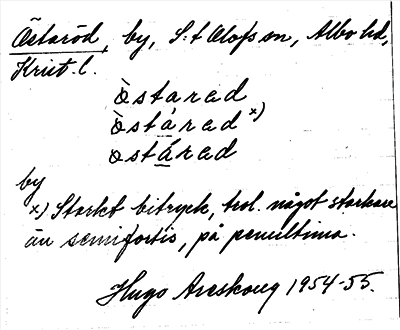 Östaröd, by, S:t Olofs sn, Albo hd,
Krist. l.
òstarad
òstárad x)
ostárad
by
x) Starkt bitryck, trol. något starkare
än semifortis, på penultima.
Hugo Areskoug 1954-55.